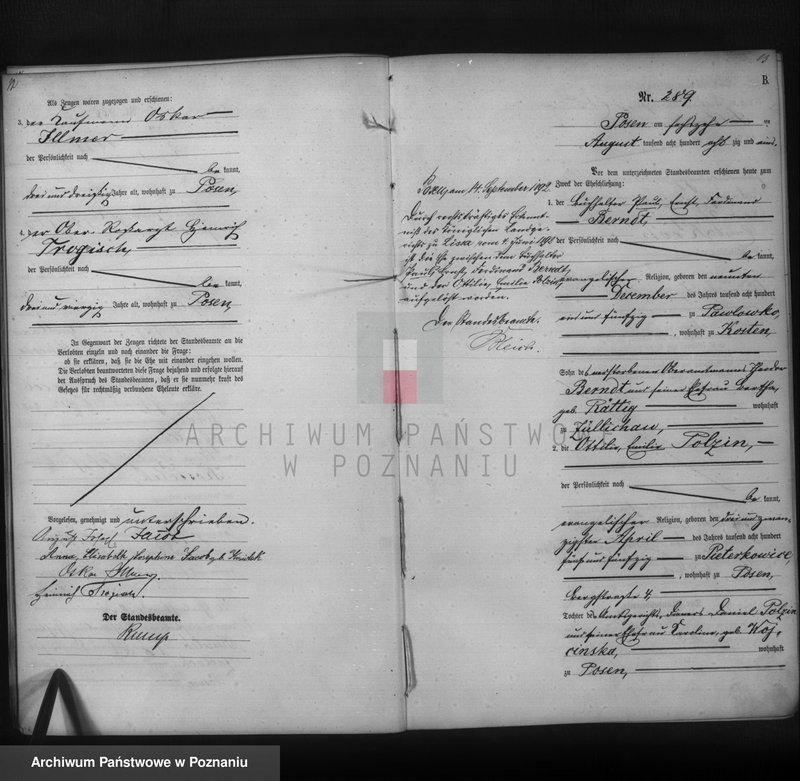 12
Als Zeugen waren zugezogen und erschienen:
3. der Kaufmann Oskar
Illmer
der Persönlichkeit nach
be kannt,
drei und dreißig Jahre alt, wohnhaft zu Posen,
4. der Ober-Roßarzt Heinrich
Trogisch,
der Persönlichkeit nach
be kannt,
drei und vierzig Jahre alt, wohnhaft zu Posen,
In Gegenwart der Zeugen richtete der Standesbeamte an die
Verlobten einzeln und nach einander die Frage:
ob sie erklären, daß sie die Ehe mit einander eingehen wollen.
Die Verlobten beantworteten diese Frage bejahend und erfolgte hierauf
der Ausspruch des Standesbeamten, daß er sie nunmehr kraft des
Gesetzes für rechtmäßig verbundene Eheleute erkläre.
Vorgelesen, genehmigt und unterschrieben.
August Josef Jacob
Anna, Elisabeth, Josephine Jacob geb.
Oskar Illmer
Heinrich Trogisch.
Der Standesbeamte.
Rump
13
B.
Nr. 289.
Posen am sechszehn ten
August tausend acht hundert acht zig und eins.
Vor dem unterzeichneten Standesbeamten erschienen heute zum
Zweck der Eheschließung:
1. der Buchhalter Paul, Ernst, Ferdinand
Berndt,
der Persönlichkeit nach
be kannt,
evangelischer Religion, geboren den neunten
Dezember des Jahres tausend acht hundert
ein und fünfzig zu Pawlowko,
, wohnhaft zu Kosten,
Sohn des verstorbenen Oberamtmanns Theodor
Berndt und seiner Ehefrau Bertha,
geb. Rättig wohnhaft
zu Züllichau,
2. die Ottilie, Emilie Polzin,
der Persönlichkeit nach
be kannt,
evangelischer Religion, geboren den drei und zwan-
zigsten April des Jahres tausend acht hundert
fünf und fünfzig zu Pieterkowice,
, wohnhaft zu Posen,
Bergstraße 4,
Tochter des Amtsgerichts-Dieners Daniel Polzin
und seiner Ehefrau Karoline, geb. Woj-
cinska, wohnhaft
zu Posen,
Posen, am 14. September 1892.
Durch rechtskräftiges Erkennt-
niß des Königlichen Landge-
richts zu Lissa vom 8. Juni 1892
ist die Ehe zwischen dem Buchhalter
Paul, Ernst, Ferdinand Berndt,
und der Ottilie, Emilie Polzin
aufgelöst worden.
Der Standesbeamte.
ARCHIWUM PAŃSTWOWE
W POZNANIU
Archiwum Państwowe w Poznaniu